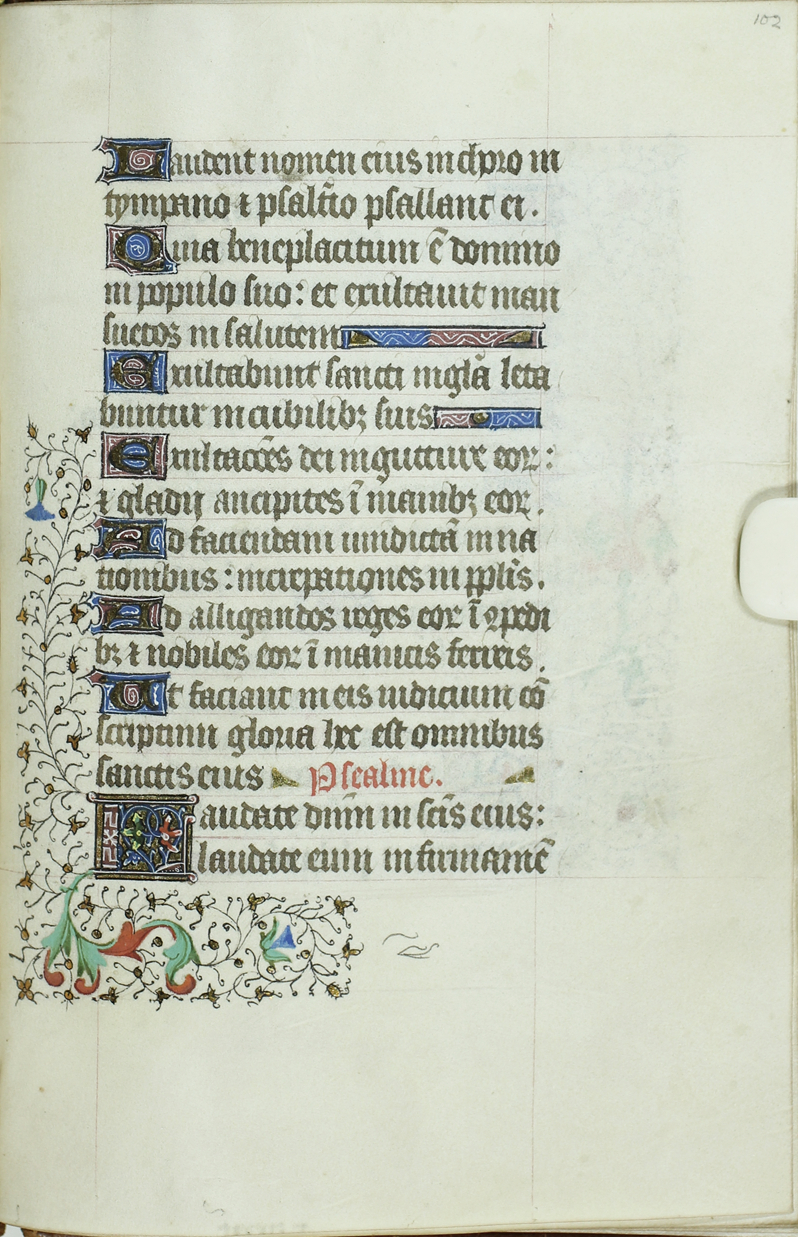 102
Laudent nomen eius in choro in
tympano ⁊ psalt̃io psallant ei.
Quia beneplacitum ẽ domino
in populo suo: et exultauit man
suetos in salutem
Exultabunt sancti in gl̃a leta
buntur in cubilibꝫ suis
Exultac̃oẽs dei in gutture eoꝝ:
⁊ gladij ancipites ĩ manibꝫ eoꝝ.
Ad faciendam uindictã in na
tionibus: increpationes in ppl̃is.
Ad alligandos reges eoꝝ ĩ ꝯpedi
bꝫ ⁊ nobiles eoꝝ ĩ manicis ferreis.
Ut faciant in eis iudicium cõ
scriptum gloria hec est omnibus
sanctis eius Psealme.
Laudate dñm in sc̃is eius:
laudate eum in firmamẽ